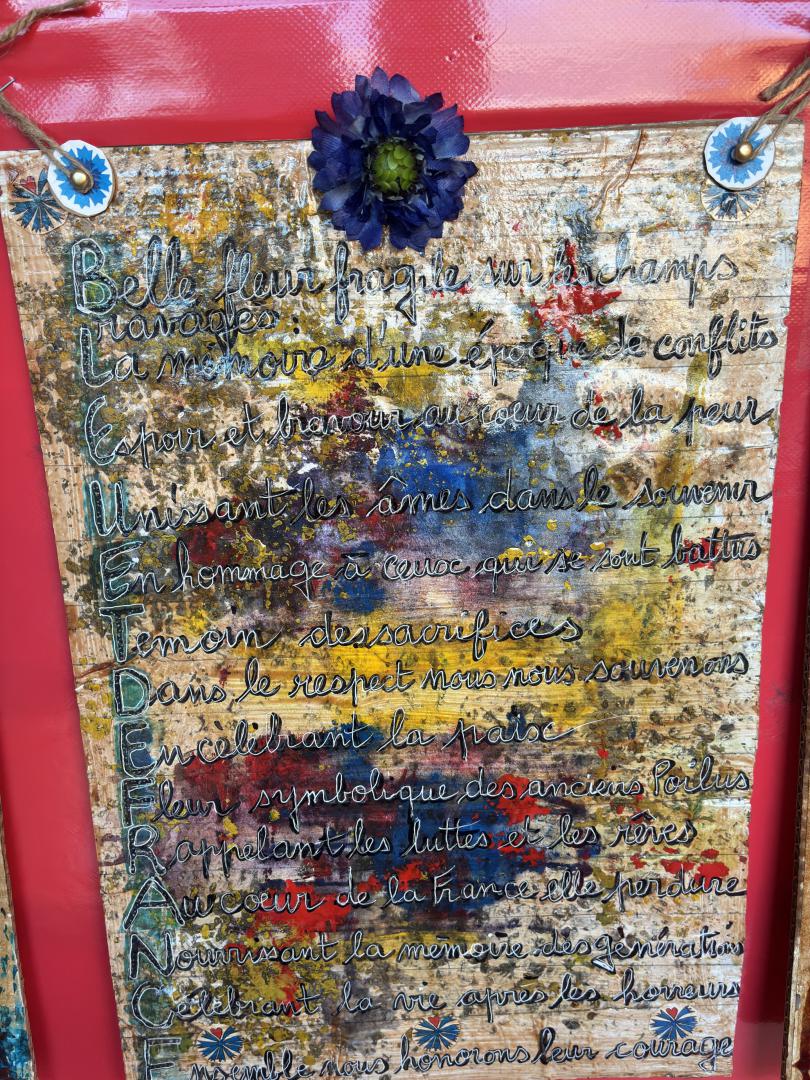 Belle fleur fragile sur les champs
ravagés :
La mémoire d'une époque de conflits
Espoir et bravoure au coeur de la peur
Unissant les âmes dans le souvenir
En hommage à ceux qui se sont battus
Temoin des sacrifices
Dans le respect nous nous souvenons
En célébrant la paix
Fleur symbolique des anciens Poilus
Rappelant les luttes et les rêves
Au coeur de la France elle perdure
Nourrissant la mémoire des générations
Célébrant la vie après les horreurs
Ensemble nous honorons leur courage